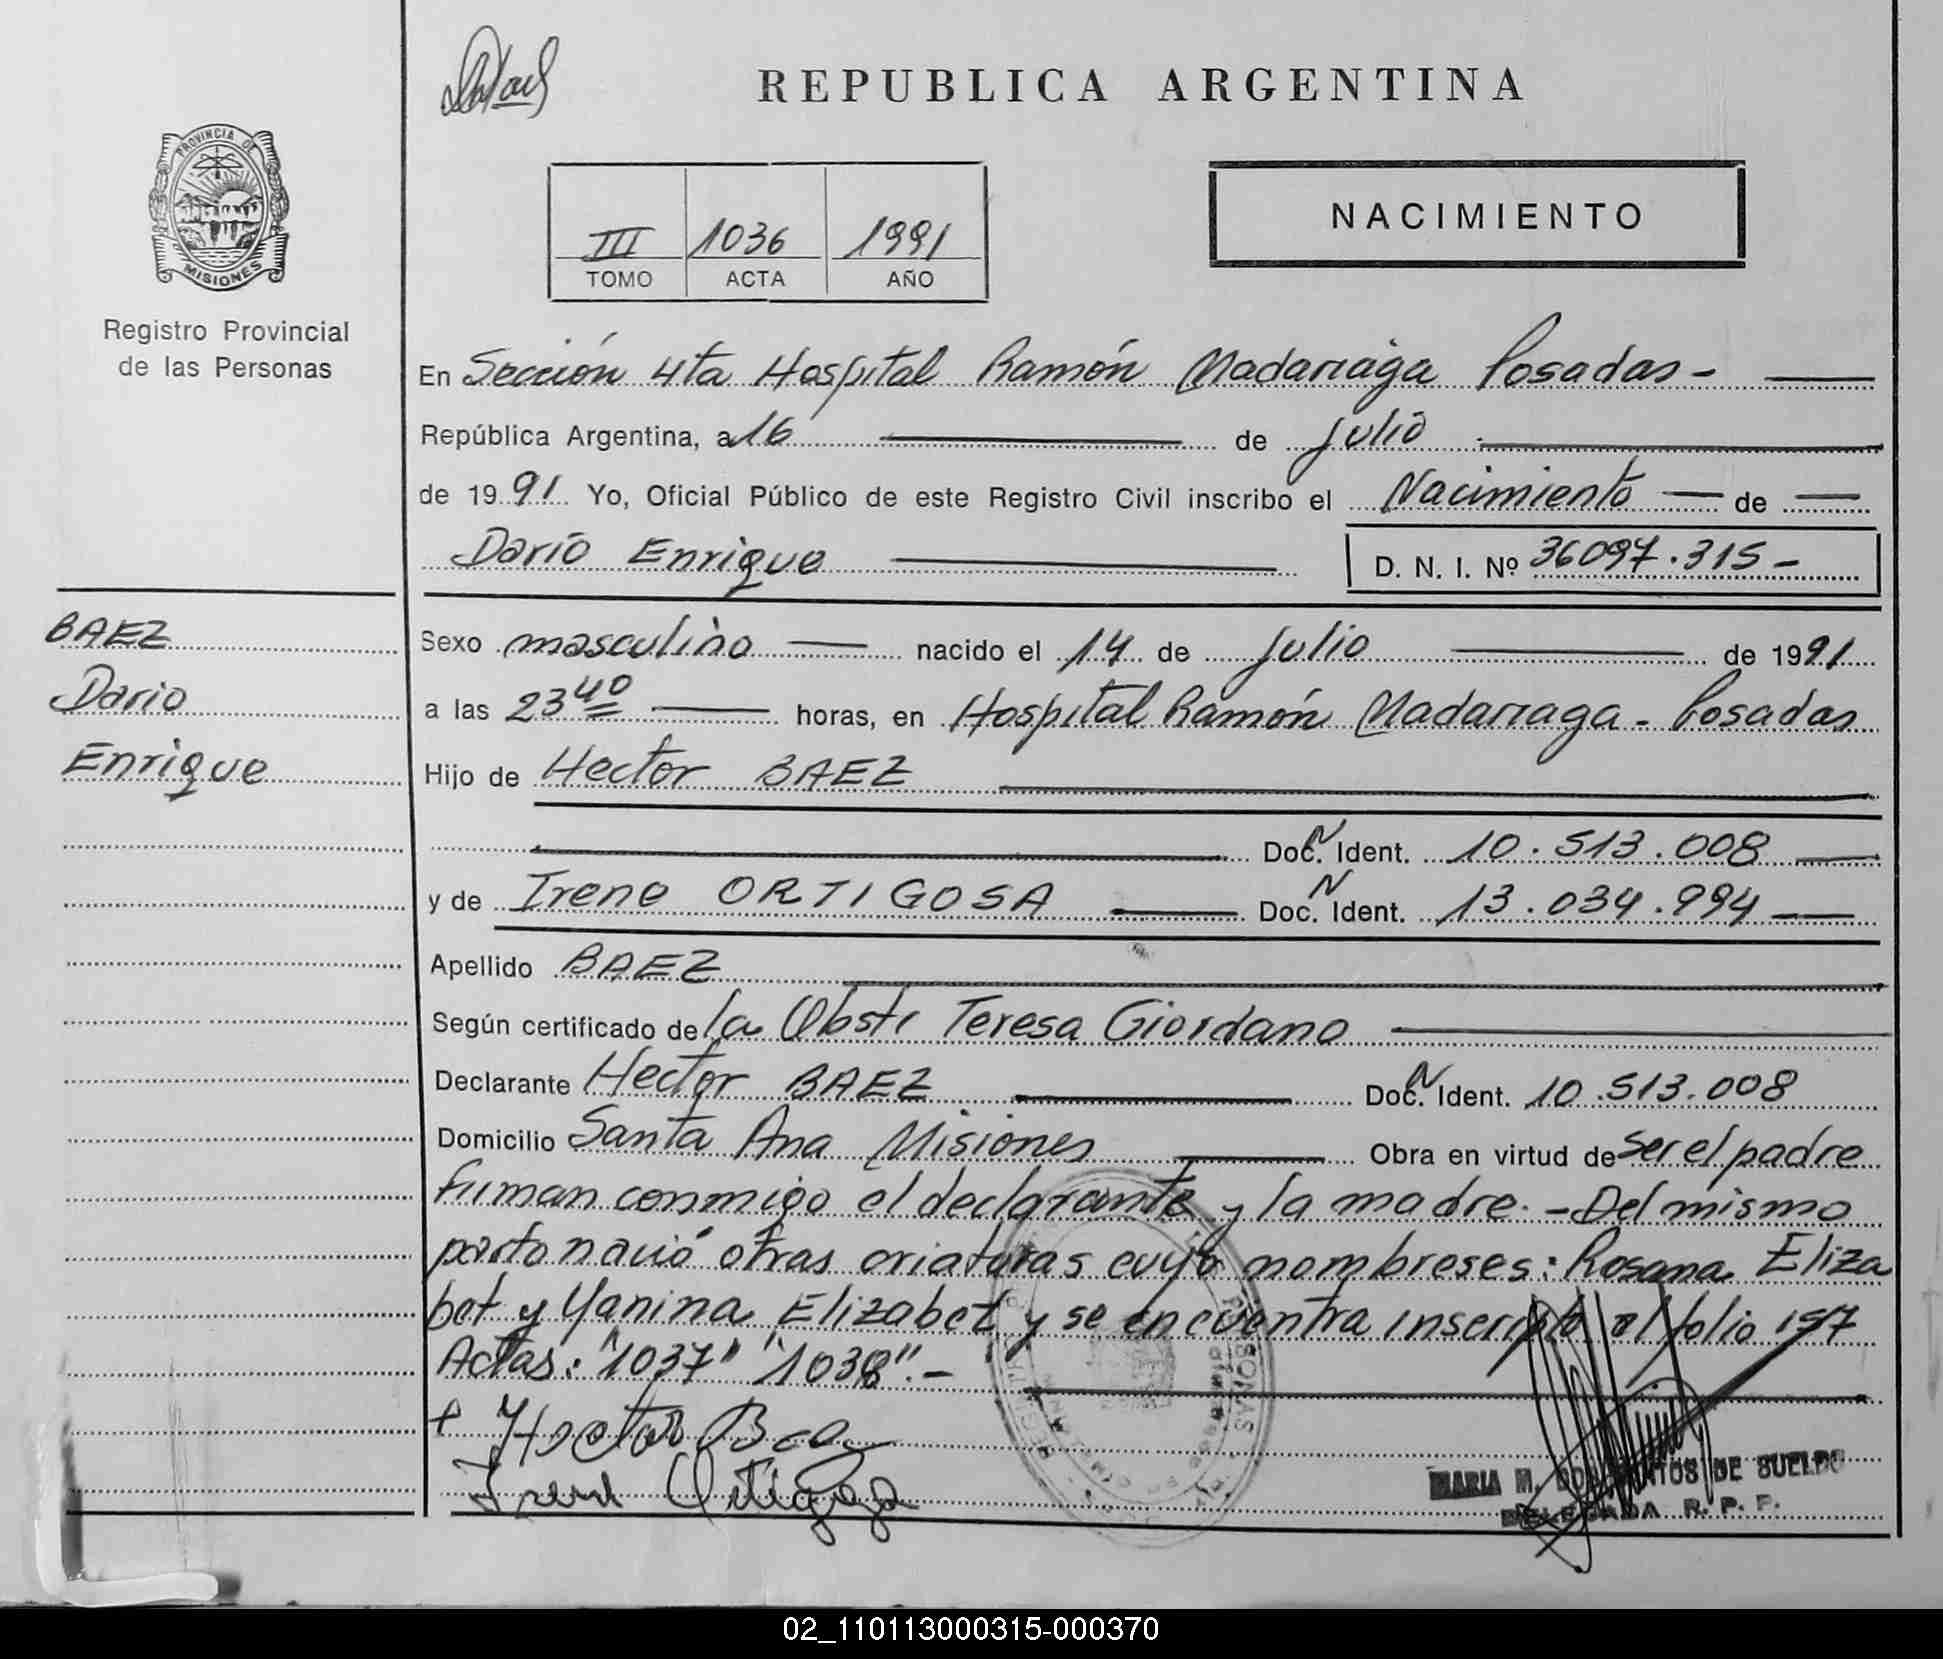 REPUBLICA ARGENTINA
PROVINCIA DE
MISIONES
Registro Provincial
de las Personas
III 1036 1991
TOMO ACTA AÑO
NACIMIENTO
En Sección 4ta Hospital Ramón Madariaga Posadas -
República Argentina, a 16 de Julio
de 1991 Yo, Oficial Público de este Registro Civil inscribo el Nacimiento de
Darío Enrique D. N. I. Nº 36097.315 -
BAEZ
Dario
Enrique
Sexo masculino nacido el 14 de Julio de 1991
a las 23 40 horas, en Hospital Ramón Madariaga - Posadas
Hijo de Hector BAEZ
Doc. N Ident. 10.513.008
y de Irene ORTIGOSA Doc. N Ident. 13.034.994
Apellido BAEZ
Según certificado de la Obstr Teresa Giordano
Declarante Hector BAEZ Doc. N Ident. 10.513.008
Domicilio Santa Ana Misiones Obra en virtud de ser el padre
firman conmigo el declarante y la madre. - Del mismo
parto nació otras criaturas cuyo nombreses: Rosana Eliza
bet y Yanina Elizabet y se encuentra inscripto al folio 157
Actas: "1037" "1038". -
Hector Baez
Irene Ortigoza
MARIA M. DE SUELDO
DELEGADA R. P. P.
02_110113000315-000370